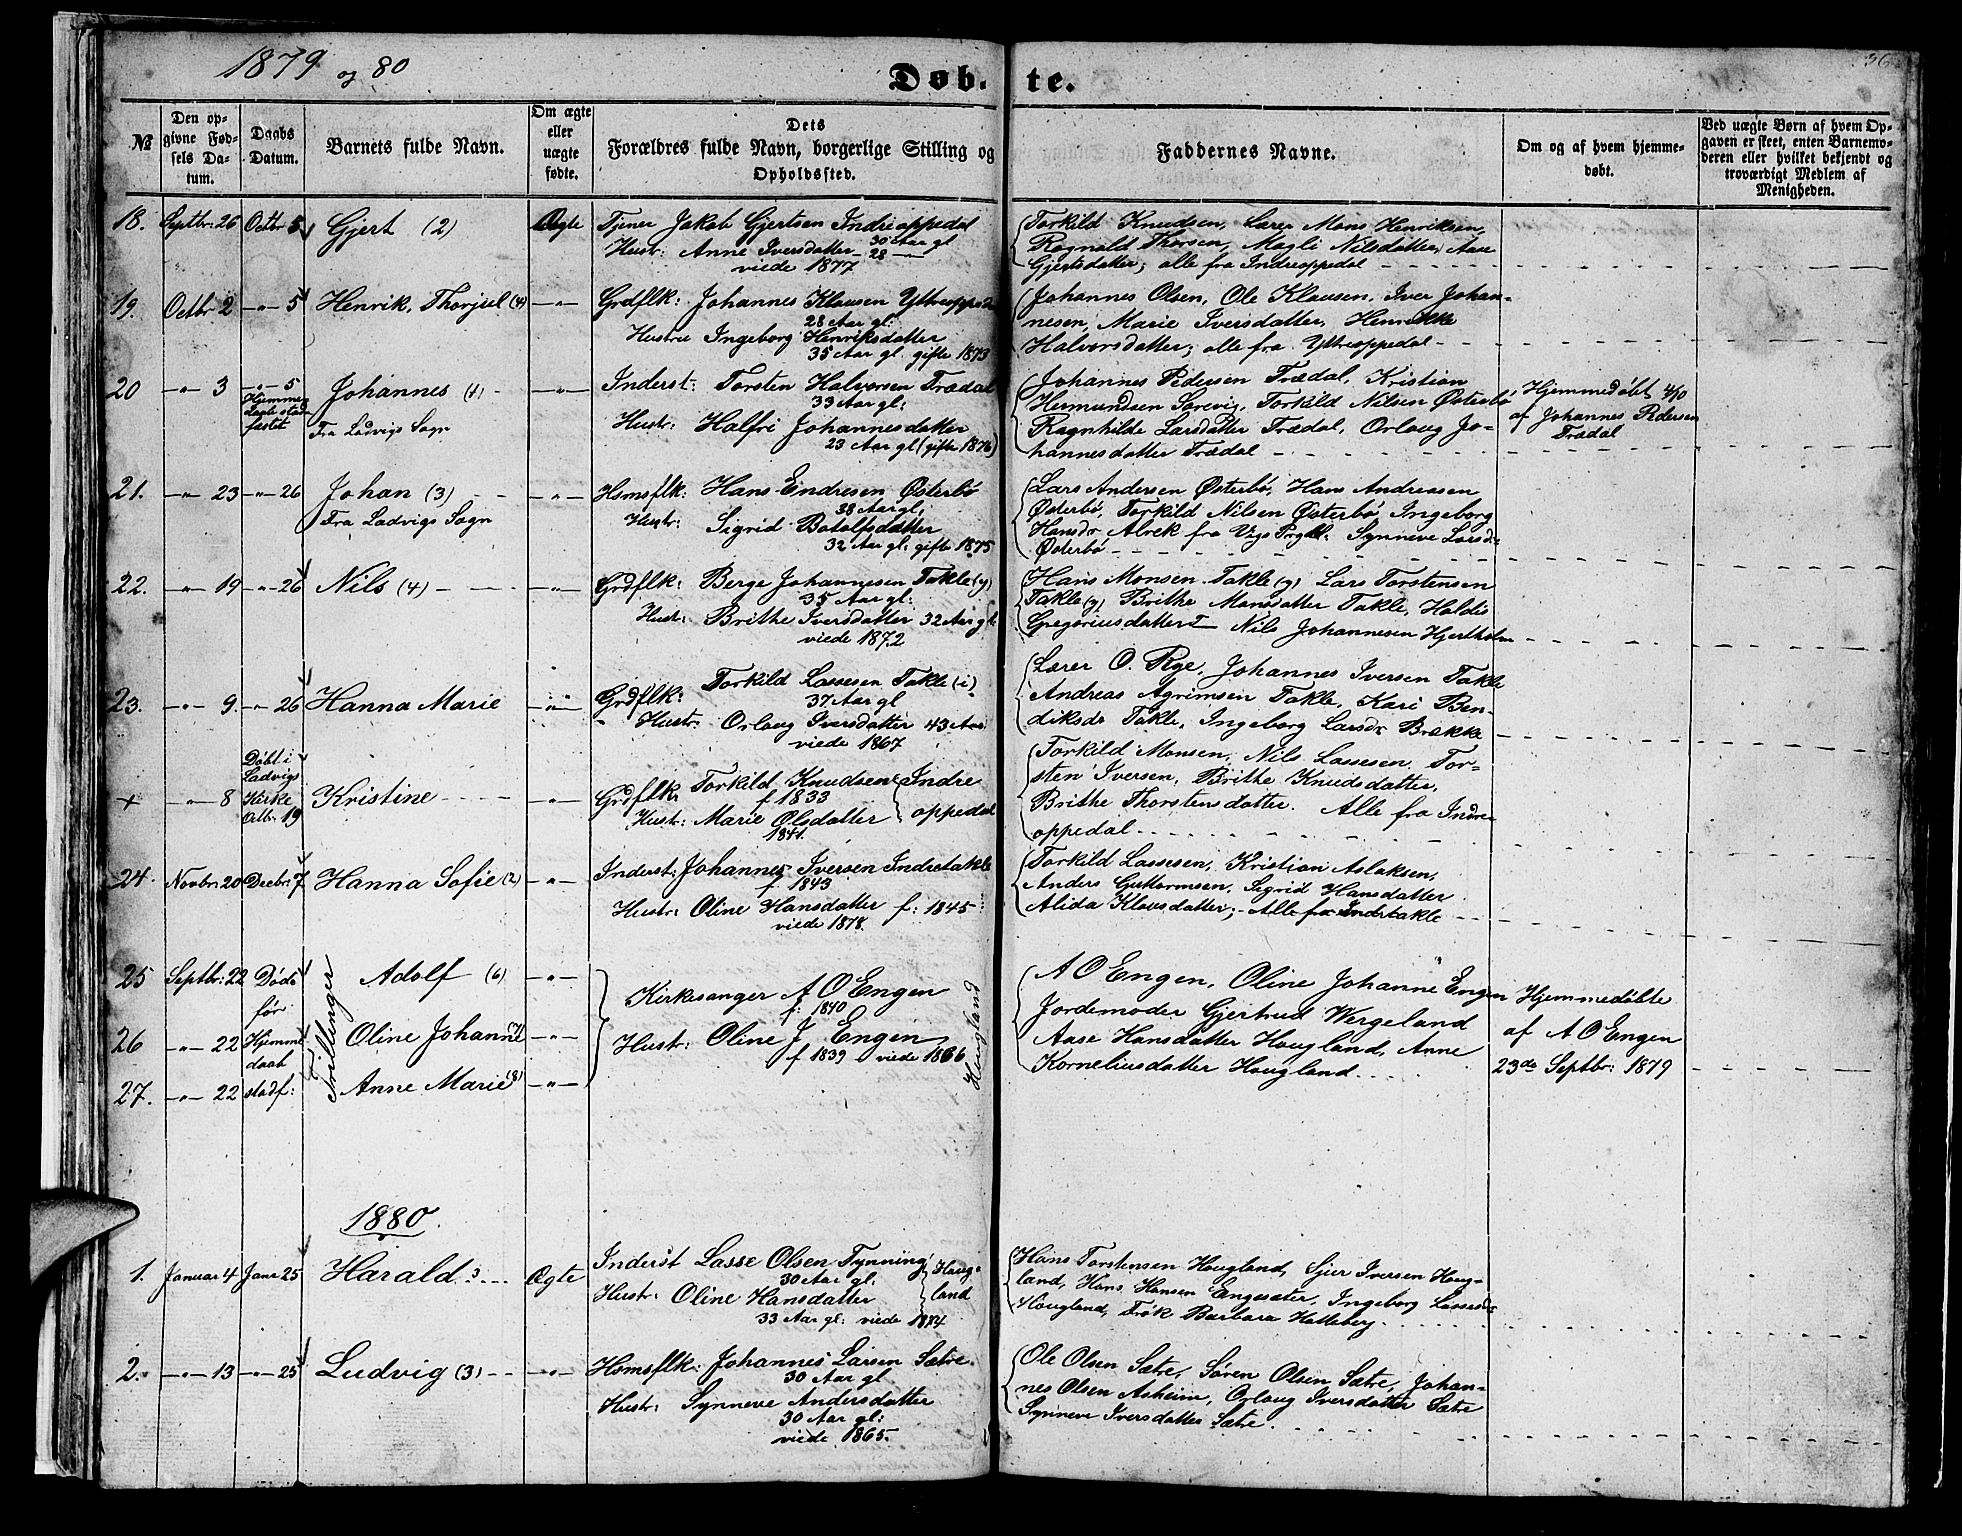 1879 og 80
36
Døb- te.
№
Den op-
givne Fød-
sels Da-
tum.
Daabs
Datum.
Barnets fulde Navn.
Om ægte
eller
uægte
fødte.
Dets
Forældres fulde Navn, borgerlige Stilling og
Opholdssted.
Faddernes Navne.
Om og af hvem hjemme-
døbt.
Ved uægte Børn af hvem Op-
gaven er skeet, enten Barnemo-
deren eller hvilket bekjendt og
troværdigt Medlem af
Menigheden.
18. Septbr: 26 Octbr 5 Gjert (2) Ægte
Tjener Jakob Gjertsen Indreoppedal
30 Aar gl
Hustr: Anne Iversdatter - 28 -
viede 1877
Torkild Knudsen, Lærer Mons Henriksen,
Ragnald Thorsen, Magli Nilsdatter, Aase
Gjertsdatter; alle fra Indreoppedal
19. Octbr 2 -"- 5 Henrik, Thorjsel (4) -"-
Grdflk: Johannes Klausen Ytreoppedal
28 Aar gl:
Hustru Ingeborg Henriksdatter
35 Aar gl. gifte 1873
Johannes Olsen, Ole Klausen, Iver Johan-
nesen, Marie Iversdatter, Henrikke
Halvorsdatter; alle fra Yttreoppedal
20 -"- 3 -"- 5
Hjemme
stad-
festet
Johannes (4) -"-
Fra Ladvigs Sogn
Inderst: Torsten Halvorsen Trædal
33 Aar gl:
Hustr: Halfri Johannesdatter
23 Aar gl (gifte 1876)
Johannes Pedersen Trædal, Kristian
Hermundsen Sørevig, Torkild Nilsen Østerbø,
Ragnhilde Larsdatter Trædal, Orloug Jo-
hannesdatter Trædal
Hjemmedøbt 4/10
af Johannes Pedersen
Trædal
21. -"- 23 -"- 26 Johan (3) -"-
Fra Ladvigs Sogn
Hsmsflk: Hans Endresen Østerbø
38 Aar gl:
Hustr: Sigrid Botolfsdatter
32 Aar gl: gifte 1875
Lars Andersen Østerbø, Hans Andreassen
Østerbø, Torkild Nilsen Østerbø, Ingeborg
Hansdr Alrek fra Prgld: Synneve Larsdr
Østerbø
22. -"- 19 -"- 26 Nils (4) -"-
Grdflk: Berge Johannesen Takle (y)
35 Aar gl:
Hustr: Brithe Iversdatter 32 Aar gl
viede 1872
Hans Monsen Takle (y) Lars Torstensen
Takle (y) Brithe Monsdatter Takle, Haldis
Gregoriusdatter T Nils Johannesen Hjertholm
23. -"- 9. -"- 26 Hanna Marie -"-
Grdflk: Torkild Lassesen Takle (i)
37 Aar gl
Hustr: Orloug Iversdatter 43 Aar
viede 1867
Lærer O. Rye, Johannes Iversen Takle
Andreas Agrimsen Takle, Kari Ben-
diksdr Takle, Ingeborg Larsdr Brække
+ -"- 8
Døbt i
Ladvigs
Kirke
Octbr. 19
Kristine -"-
Grdflk: Torkild Knudsen Indre
f 1833
Hustr: Marie Olsdatter oppedal
1841.
Torkild Monsen, Nils Lassesen, Tor-
sten Iversen, Brithe Knudsdatter,
Brithe Thorstensdatter. Alle fra Indre
oppedal
24. Novbr: 20 Decbr: 7 Hanna Sofie (2) -"-
Inderst: Johannes Iversen Indretakle
f 1843
Hustr: Oline Hansdatter f: 1845
viede 1878.
Torkild Lassesen, Kristian Aslaksen,
Anders Guttormsen, Sigrid Hansdatter
Alida Klausdatter; Alle fra Indretakle
25 Septbr: 22 Døde Adolf (6) -"-
før
26 -"- 22 Hjemme Oline Johanne (7) -"-
daab
27. -"- 22 stadf: Anne Marie (8) -"-
Trillinger
Kirkesanger A O Engen
f: 1840
Hustr: Oline J Engen
f 1839 viede 1866
Hougland
A O Engen, Oline Johanne Engen
Jordemoder Gjertrud Wergeland
Aase Hansdatter Hougland, Anne
Korneliusdatter Hougland.
Hjemmedøbte
af A O Engen
23de Septbr: 1879
1880.
1. Januar 4 Janr 25 Harald 3 Ægte
Inderst Lasse Olsen Tynning Houg-
30 Aar gl.
Hustr: Oline Hansdatter land
33 Aar gl: viede 1874
Hans Torstensen Hougland, Sjur Iversen Houg-
land, Hans Hansen Engesæter, Ingeborg Lassedr
Hougland, Frøk Barbara Hatleberg.
2. -"- 13 -"- 25 Ludvig (3) -"-
Hsmsflk: Johannes Larsen Sætre.
30 Aar gl
Hustr: Synneve Andersdatter
30 Aar gl:
viede 1865.
Ole Olsen Sætre, Søren Olsen Sætre, Johan-
nes Olsen Asheim, Orloug Iversdatter Sætre
Synneve Iversdatter Sætre.